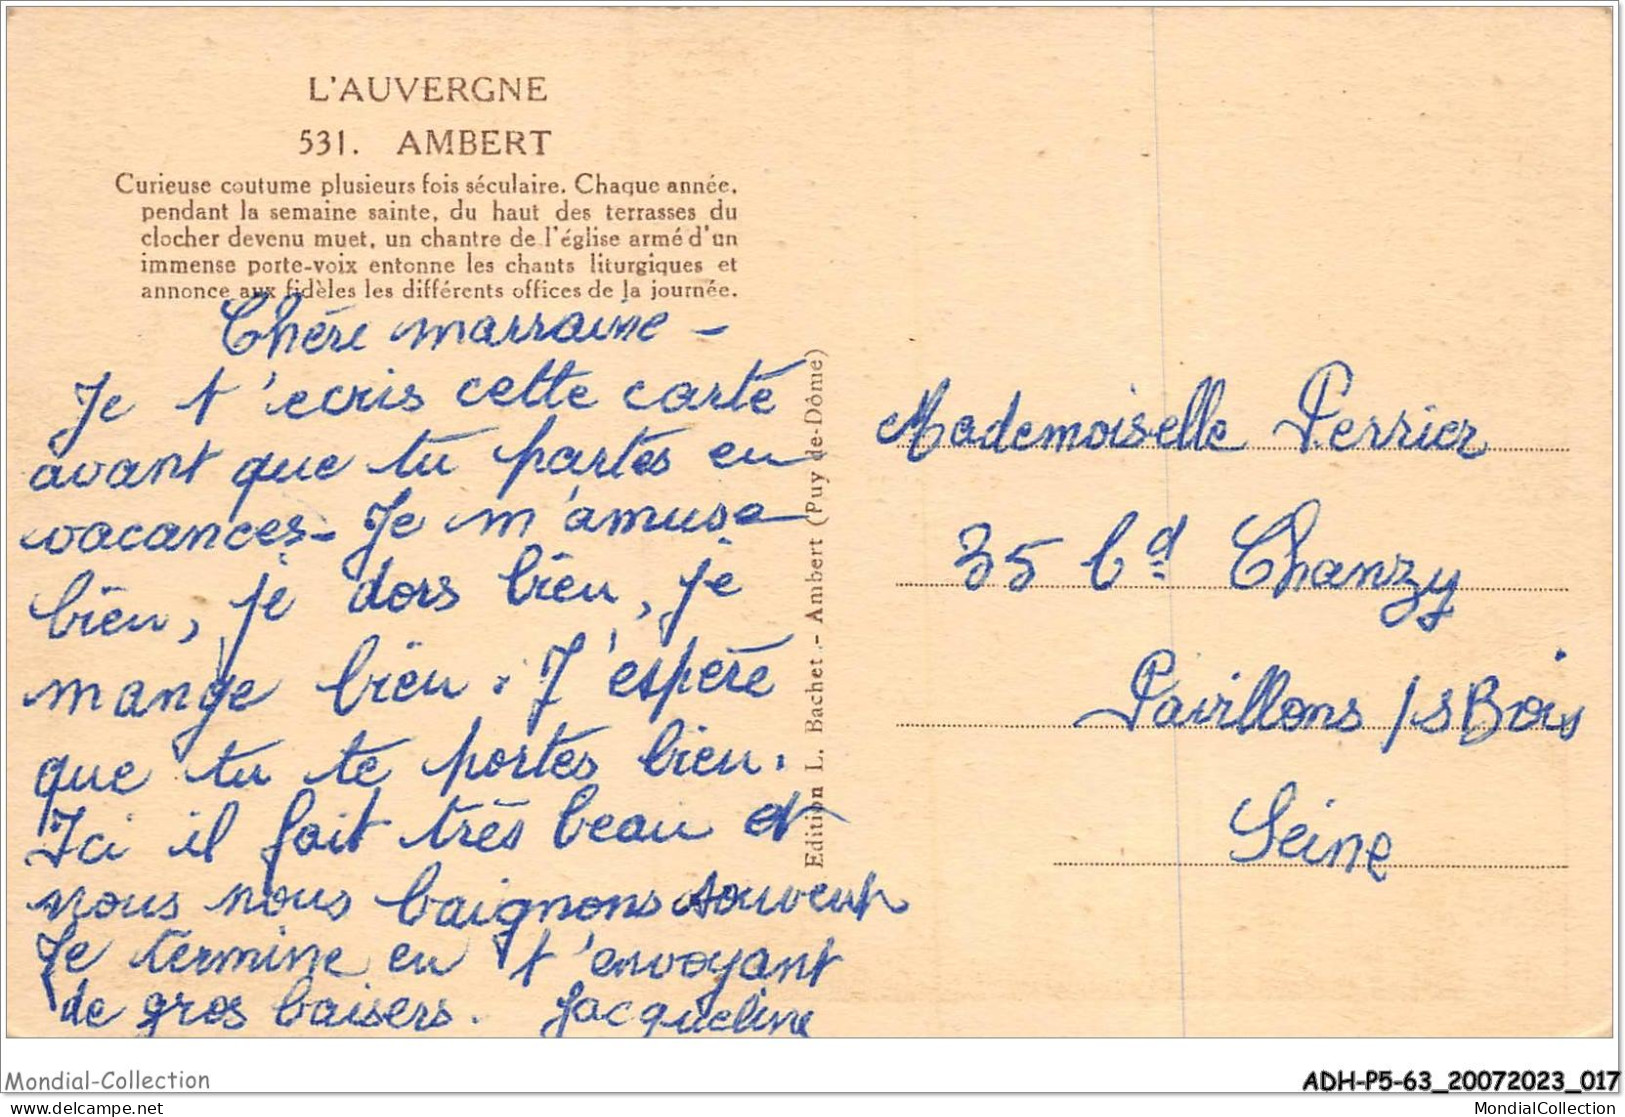 L'AUVERGNE
531. AMBERT
Curieuse coutume plusieurs fois séculaire. Chaque année,
pendant la semaine sainte, du haut des terrasses du
clocher devenu muet, un chantre de l'église armé d'un
immense porte-voix entonne les chants liturgiques et
annonce aux fidèles les différents offices de la journée.
Chère marraine -
Je t'ecris cette carte
avant que tu partes en
vacances - Je m'amuse
bien, je dors bien, je
mange bien. J'espère
que tu te portes bien.
Ici il fait très beau et
nous nous baignons souvent
Je termine en t'envoyant
de gros baisers. Jacqueline
Edition L. Bachet. - Ambert (Puy de-Dôme)
Mademoiselle Perrier
35 bd Chanzy
Pavillons /s Bois
Seine
Mondial-Collection
ADH-P5-63_20072023_017
delcampe.net
MondialCollection